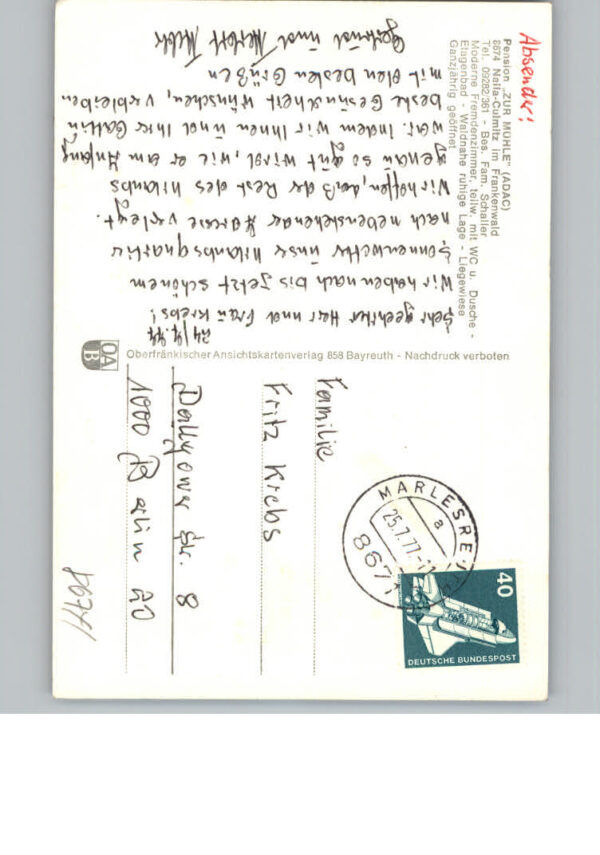 Absender!
Pension „ZUR MÜHLE" (ADAC)
8674 Naila-Culmitz im Frankenwald
Tel. 09282/361 - Bes. Fam. Schaller
Moderne Fremdenzimmer, teilw. mit WC u. Dusche -
Etagenbad - Waldnahe ruhige Lage - Liegewiese
Ganzjährig geöffnet
24/7.77
Sehr geehrter Herr und Frau Krebs!
Wir haben nach bis jetzt schönem
Sonnenwetter unser Urlaubsquartier
nach nebenstehender Adresse verlegt.
Wir hoffen, daß der Rest des Urlaubs
genau so gut wird, wie er am Anfang
war. Indem wir Ihnen und Ihrer Gattin
beste Gesundheit wünschen, verbleiben
mit den besten Grüßen
Gertrud und Herbert
Oberfränkischer Ansichtskartenverlag 858 Bayreuth - Nachdruck verboten
OAB
Familie
Fritz Krebs
Dallgower Str. 8
1000 Berlin 20
MARLESRE
a
25.7.77
8671
40
DEUTSCHE BUNDESPOST